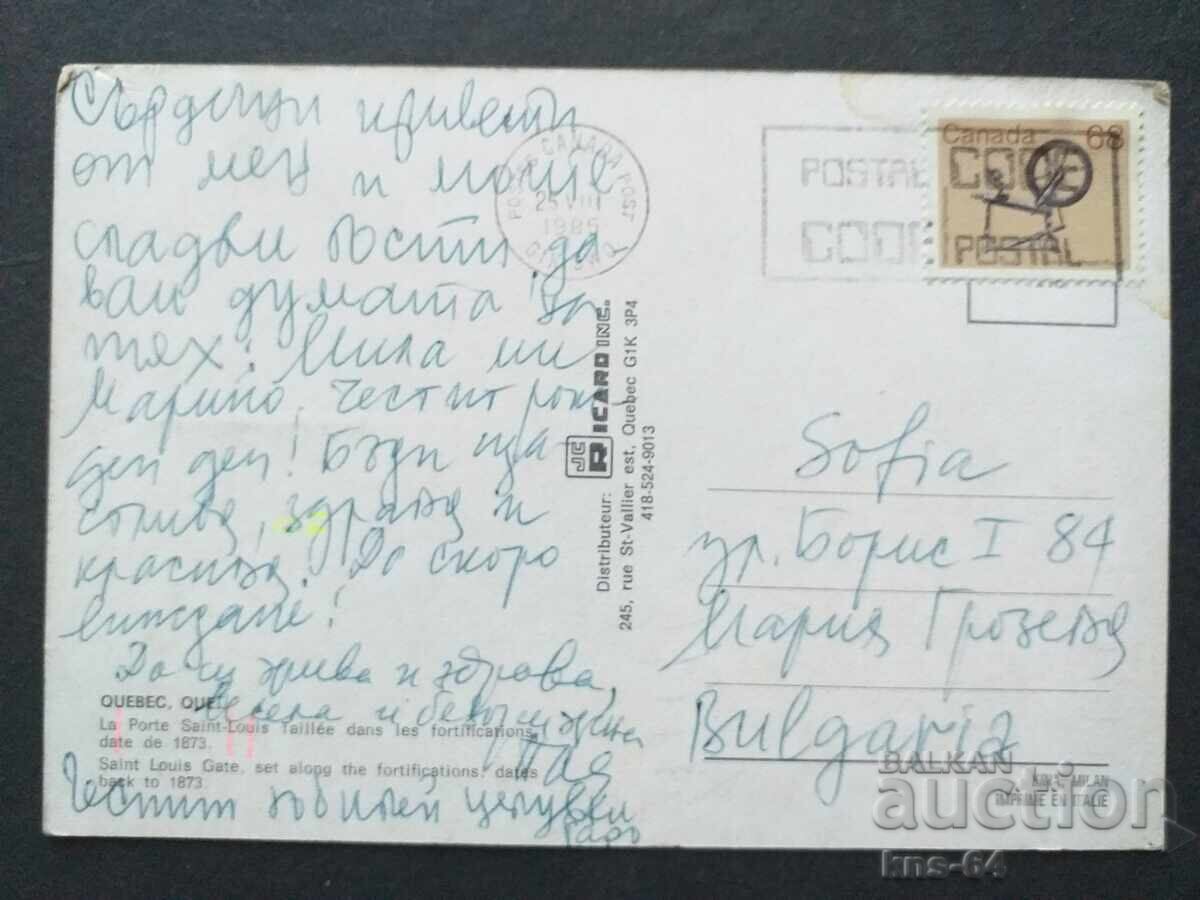 Сърдечни привети
от мен и моите
сладки гости да
вам думата за
тях: Мила ми
Марийо, Честит рож
ден ден! Бъди ща
стлива, здрава и
красива! До скоро
виждане!
Да си жива и здрава,
весела и безгрижна
Честит юбилей целувки
QUEBEC, QUE.
La Porte Saint-Louis Taillée dans les fortifications,
date de 1873.
Saint Louis Gate, set along the fortifications: dates
back to 1873.
Distributeur: JC RICARD INC.
245, rue St-Vallier est, Quebec G1K 3P4
418-524-9013
CANADA POST
POSTAL CODE
CODE POSTAL
Canada 68
Sofia
ул. Борис I 84
Мария Грозева
Bulgaria
KINA, MILAN
IMPRIMÉ EN ITALIE
BALKAN
auction
kns-64